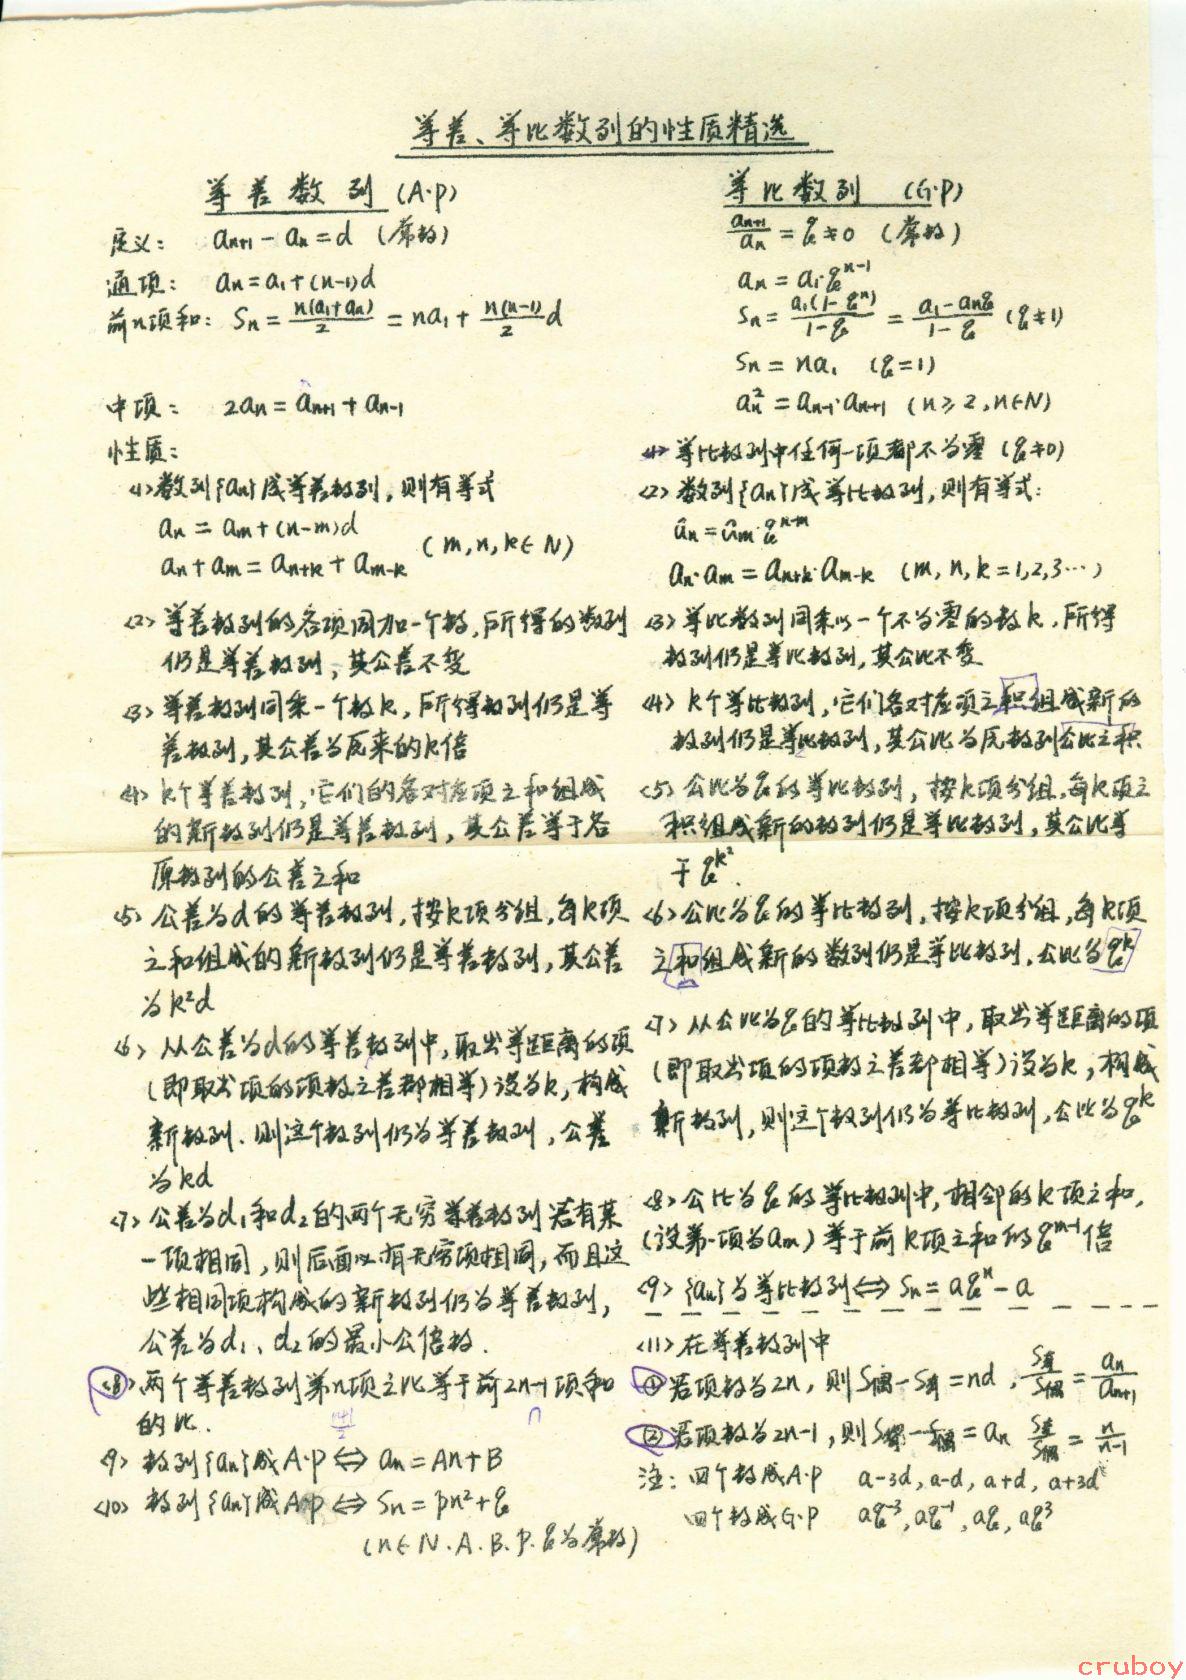 等差、等比数列的性质精选
等差数列 (A·P)
定义: aₙ₊₁ - aₙ = d (常数)
通项: aₙ = a₁ + (n-1)d
前n项和: Sₙ = n(a₁+aₙ)/2 = na₁ + n(n-1)/2 d
中项: 2aₙ = aₙ₊₁ + aₙ₋₁
性质:
<1> 数列{aₙ}成等差数列, 则有等式
aₙ = aₘ + (n-m)d
aₙ + aₘ = aₙ₊ₖ + aₘ₋ₖ (m, n, k ∈ N)
<2> 等差数列的各项同加一个数, 所得的数列
仍是等差数列, 其公差不变
<3> 等差数列同乘一个数k, 所得数列仍是等
差数列, 其公差为原来的k倍
<4> k个等差数列, 它们的各对应项之和组成
的新数列仍是等差数列, 其公差等于各
原数列的公差之和
<5> 公差为d的等差数列, 按k项分组, 每k项
之和组成的新数列仍是等差数列, 其公差
为k²d
<6> 从公差为d的等差数列中, 取出等距离的项
(即取出项的项数之差都相等) 设为k, 构成
新数列. 则这个数列仍为等差数列, 公差
为kd
<7> 公差为d₁和d₂的两个无穷等差数列若有某
一项相同, 则后面必有无穷项相同, 而且这
些相同项构成的新数列仍为等差数列,
公差为d₁、d₂的最小公倍数.
<8> 两个等差数列第n项之比等于前2n-1项和
的比.
n+1/2
n
<9> 数列{aₙ}成A·P ⇔ aₙ = An + B
<10> 数列{aₙ}成A·P ⇔ Sₙ = pn² + q
(n∈N. A. B. P. q为常数)
等比数列 (G·P)
aₙ₊₁/aₙ = q ≠ 0 (常数)
aₙ = a₁·qⁿ⁻¹
Sₙ = a₁(1-qⁿ)/1-q = a₁-aₙq/1-q (q≠1)
Sₙ = na₁ (q=1)
aₙ² = aₙ₋₁·aₙ₊₁ (n≥2, n∈N)
<1> 等比数列中任何一项都不为零 (q≠0)
<2> 数列{aₙ}成等比数列, 则有等式:
aₙ = aₘ·qⁿ⁻ᵐ
aₙ·aₘ = aₙ₊ₖ·aₘ₋ₖ (m, n, k = 1,2,3…)
<3> 等比数列同乘以一个不为零的数k, 所得
数列仍是等比数列, 其公比不变
<4> k个等比数列, 它们各对应项之积组成新的
数列仍是等比数列, 其公比为原数列公比之积
<5> 公比为q的等比数列, 按k项分组, 每k项之
积组成新的数列仍是等比数列, 其公比等
于 q^k².
<6> 公比为q的等比数列, 按k项分组, 每k项
之和组成新的数列仍是等比数列. 公比为qᵏ
<7> 从公比为q的等比数列中, 取出等距离的项
(即取出项的项数之差都相等) 设为k, 构成
新数列, 则这个数列仍为等比数列, 公比为qᵏ
<8> 公比为q的等比数列中, 相邻的k项之和,
(设第一项为aₘ) 等于前k项之和的qᵐ⁻¹倍
<9> {aₙ}为等比数列 ⇔ Sₙ = aqⁿ - a
<11> 在等差数列中
① 若项数为2n, 则 S偶-S奇 = nd, S奇/S偶 = aₙ/aₙ₊₁
② 若项数为2n-1, 则 S奇-S偶 = aₙ S奇/S偶 = n/n-1
注: 四个数成A·P a-3d, a-d, a+d, a+3d
四个数成G·P aq⁻³, aq⁻¹, aq, aq³
cruboy